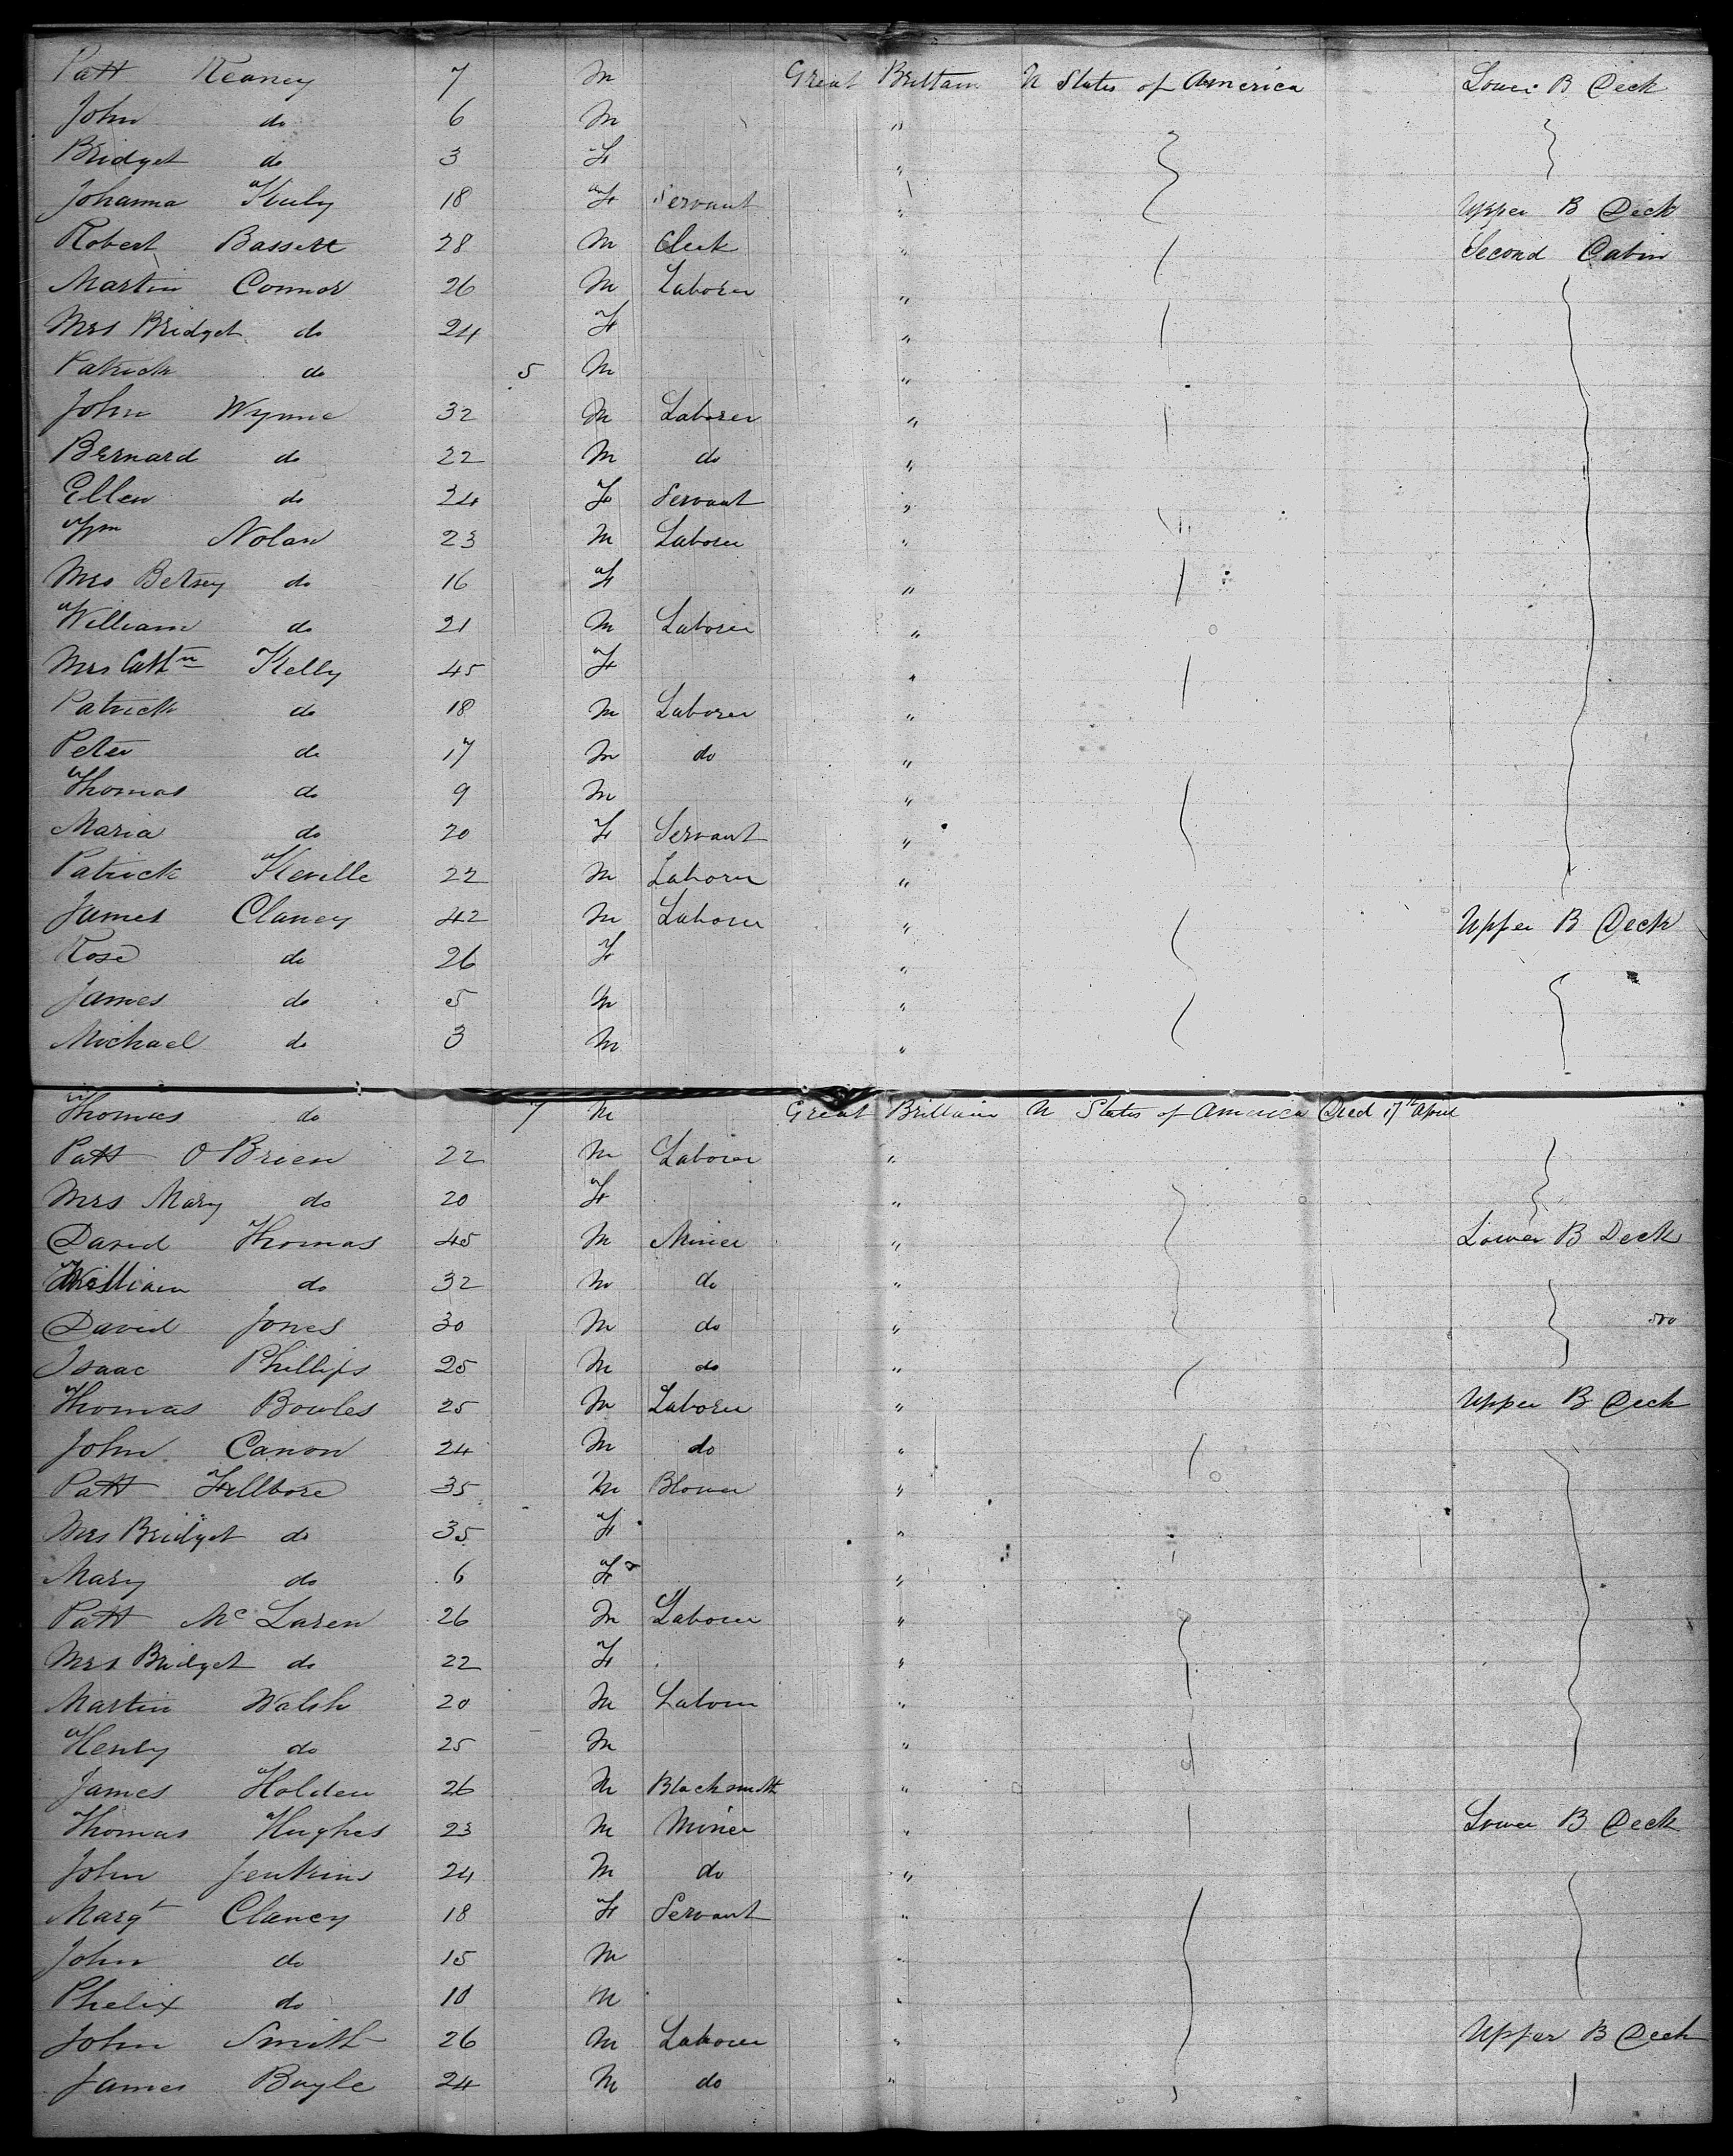 Patt Keaney 7 M Great Brittain U States of America Lower B Deck
John do 6 M "
Bridget do 3 F "
Johanna Kiuly 18 F Servant " Upper B Deck
Robert Bassett 28 M Clerk " Second Cabin
Martin Connor 26 M Laborer "
Mrs Bridget do 24 F "
Patrick do 5 M "
John Wynne 32 M Laborer "
Bernard do 22 M do "
Ellen do 24 F Servant "
Wm Nolan 23 M Laborer "
Mrs Betsey do 16 F "
William do 21 M Laborer "
Mrs Cathn Kelly 45 F "
Patrick do 18 M Laborer "
Peter do 17 M do "
Thomas do 9 M "
Maria do 20 F Servant "
Patrick Keville 22 M Laborer "
James Clancy 42 M Laborer " Upper B Deck
Rose do 26 F "
James do 5 M "
Michael do 3 M "
Thomas do 7 M Great Brittain U States of America Died 17th April
Patt O Brien 22 M Laborer "
Mrs Mary do 20 F "
David Thomas 45 M Miner " Lower B Deck
William do 32 M do "
David Jones 30 M do "
Isaac Phillips 25 M do "
Thomas Bowles 25 M Laborer " Upper B Deck
John Canon 24 M do "
Patt Fillbore 35 M Blower "
Mrs Bridget do 35 F "
Mary do 6 F "
Patt Mc Laren 26 M Laborer "
Mrs Bridget do 22 F "
Martin Walsh 20 M Laborer "
Henry do 25 M "
James Holden 26 M Blacksmith "
Thomas Hughes 23 M Miner " Lower B Deck
John Jenkins 24 M do "
Margt Clancy 18 F Servant "
John do 15 M "
Phelix do 10 M "
John Smith 26 M Laborer " Upper B Deck
James Boyle 24 M do "